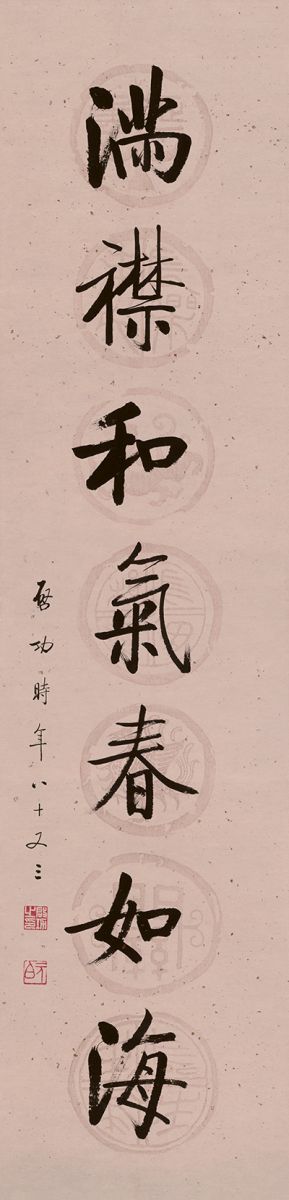 滿襟和氣春如海
啟功時年八十又三